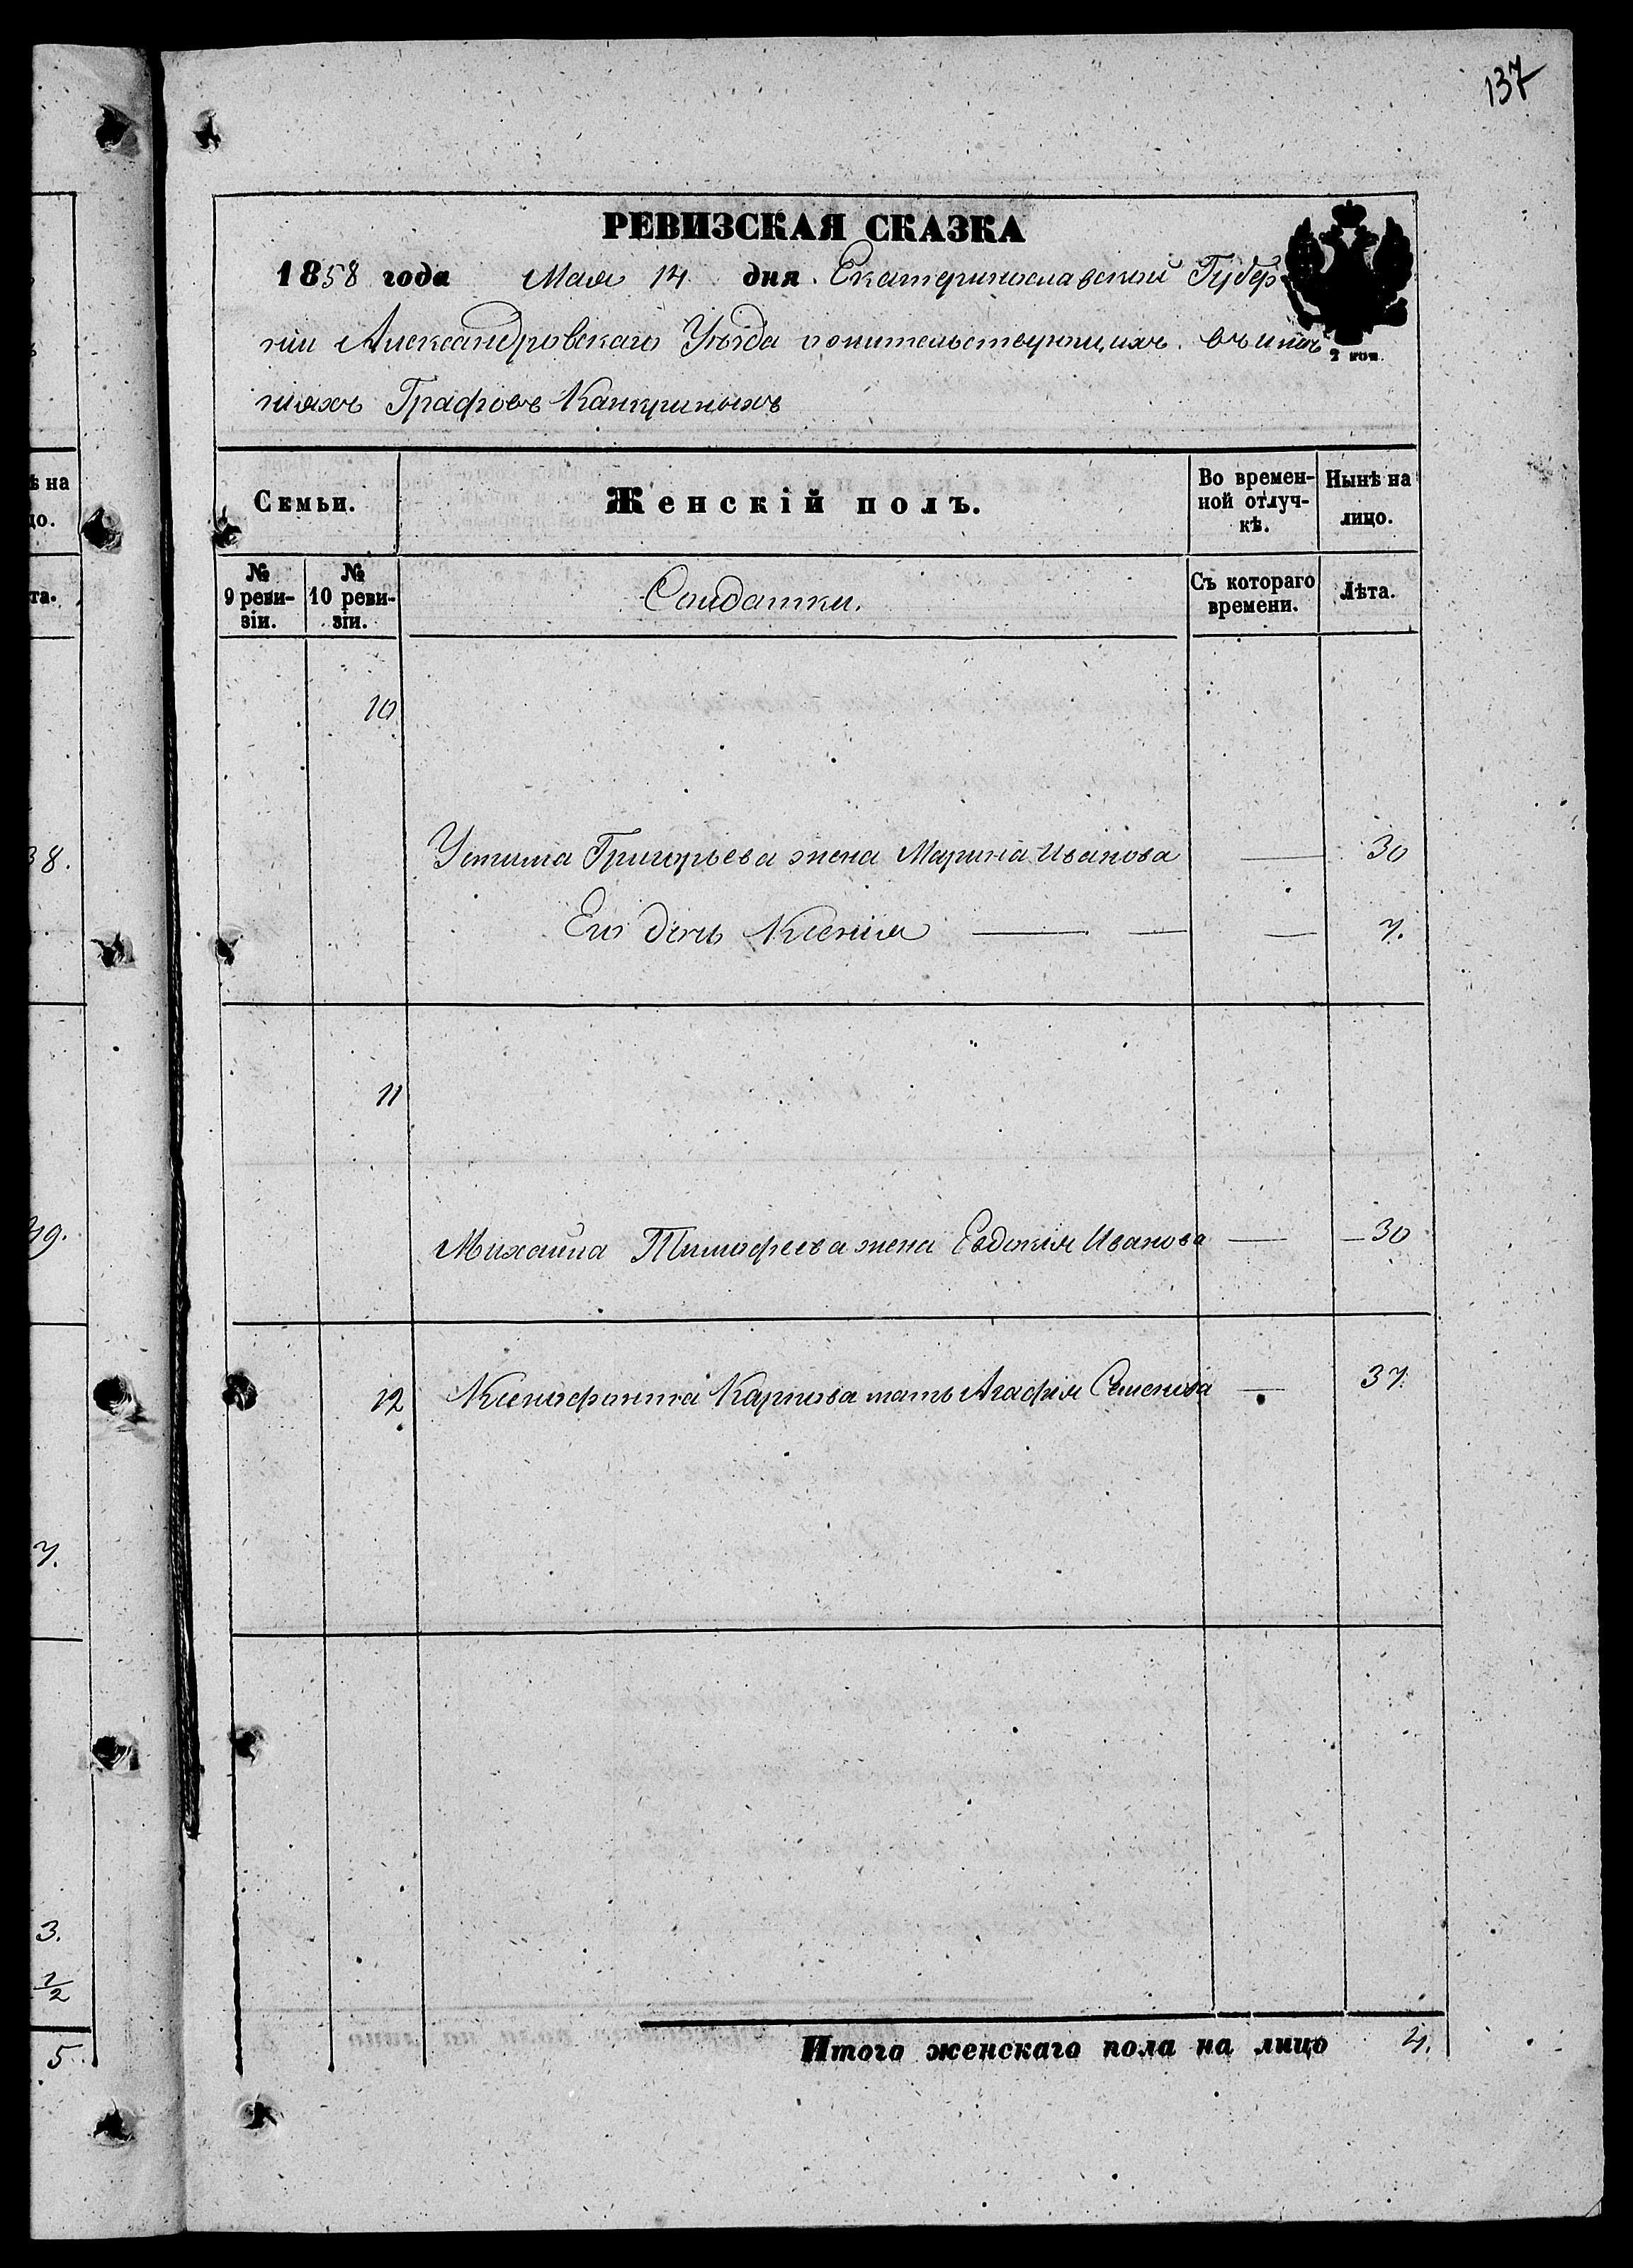 137
РЕВИЗСКАЯ СКАЗКА
1858 года Мая 14 дня Екатеринославской Губер
ніи Александровскаго Уѣзда о жительствующихъ въ имѣ
ніяхъ Графовъ Канкриныхъ
2 коп.
Семьи.
Женскій полъ.
Во времен-
ной отлуч-
кѣ.
Нынѣ на
лицо.
№
9 реви-
зіи.
№
10 реви-
зіи.
Солдатки.
Съ котораго
времени.
Лѣта.
10
Устима Григорьева жена Марина Иванова — 30
Его дочь Ксенія — — — 7.
11
Михайла Тимофеева жена Евдокія Иванова — 30
12 Ксенофонта Карпова мать Агафія Семенова — 37.
Итого женскаго пола на лицо 4.
ѣ на
цо.
та.
38.
49.
7.
3.
1/2
5.